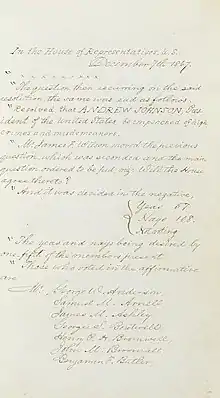 In the House of Representatives, U.S.
December 7th 1867.
"The question then recurring on the said
resolution, the same was read as follows
"Resolved that ANDREW JOHNSON, Pres-
ident of the United States be impeached of high
crimes and misdemeanors.
"Mr. James F. Wilson moved the previous
question, which was seconded and the main
question ordered to be put, viz: Will the House
agree thereto?
"And it was decided in the negative,
Yeas 57
Nays 108
"The yeas and nays being desired by
one fifth of the members present
"Those who voted in the affirmative
are
Mr. George W. Anderson
Samuel M. Arnell
James M. Ashley
George S. Boutwell
Henry P. H. Bromwell
John M. Broomall
Benjamin F. Butler